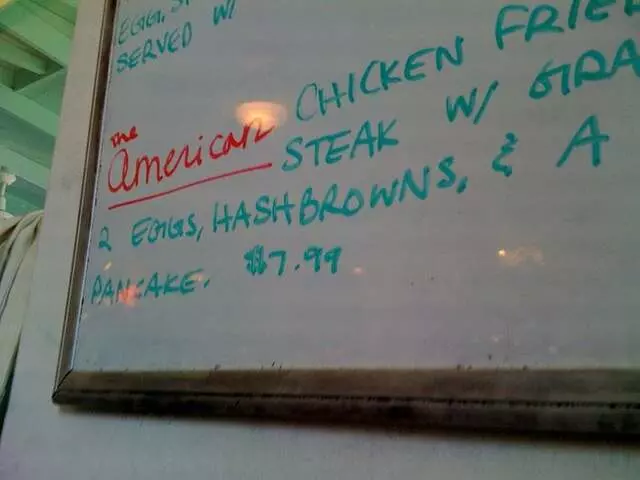 EGG, S
SERVED W/
The
American CHICKEN FRIE
STEAK W/ GRA
2 EGGS, HASHBROWNS, & A
PANCAKE. $7.99